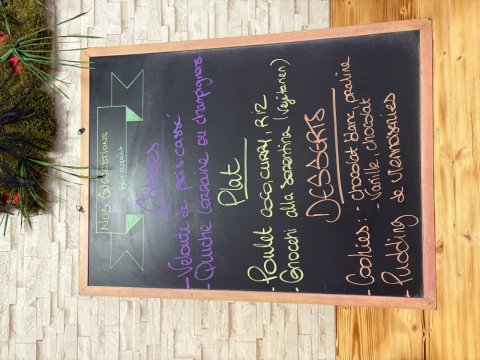 Nos Suggestions
Bon appétit
Entrées
- Velouté de pois cassé
- Quiche Lorraine ou champignons
Plat
- Poulet coco CURRY, RIZ
- Gnocchi alla sorrentina (végétarien)
DESSERTS
- Cookies : - chocolat blanc praliné
- Vanille, chocolat
- Pudding de viennoiseries